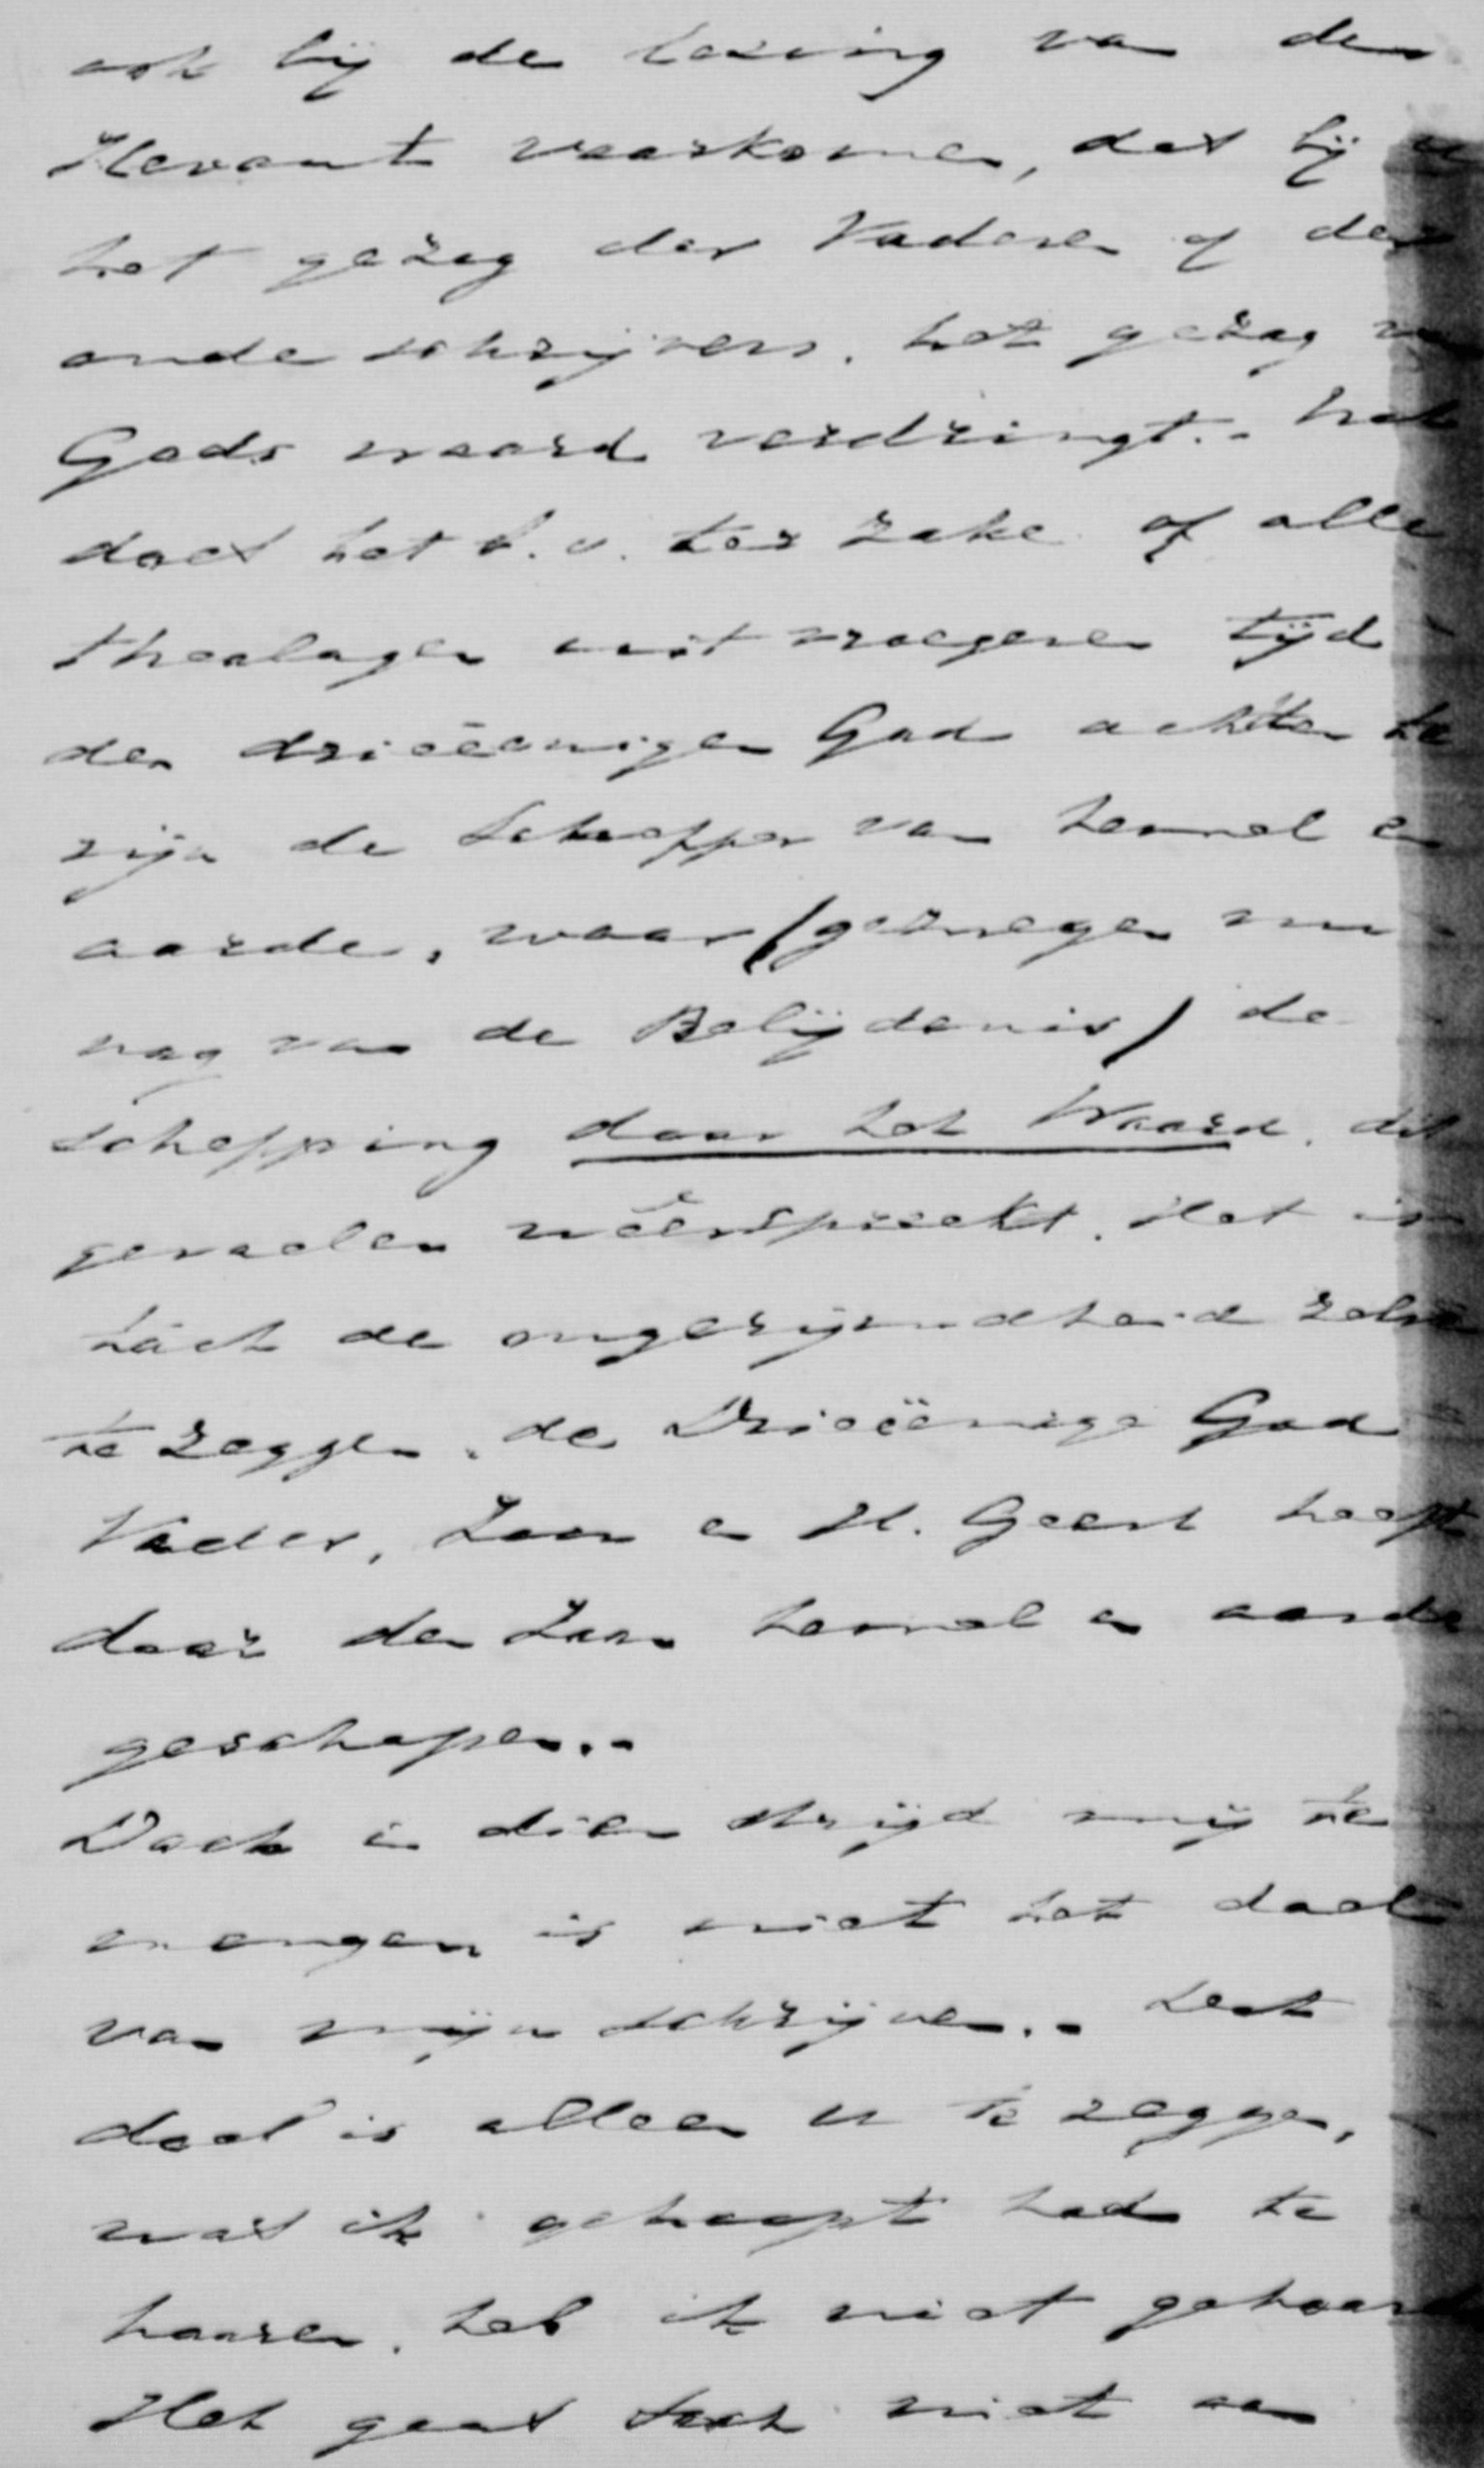 ook bij de lezing van de
Heraut voorkomen, dat bij u
het gezag der Vaderen of der
oude schrijvers, het gezag van
Gods woord verdringt.. Wat
doet het b.v. ter zake of alle
theologen uit vroegeren tijd
den drieëenigen God achten te
zijn de Schepper van hemel en
aarde, waar (gezwegen nu
nog van de Belijdenis) de
schepping door het Woord, dit
gevoelen wêerspreekt. Het is
tòch de ongerijmdheid zelve
te zeggen, de Drieëenige God
Vader, Zoon en H. Geest heeft
door den Zoon hemel en aarde
geschapen..
Doch in dien strijd mij te
mengen is niet het doel
van mijn schrijven.. Het
doel is alleen u te zeggen,
wat ik gehoopt had te
hooren, heb ik niet gehoord
Het gaat toch niet aan